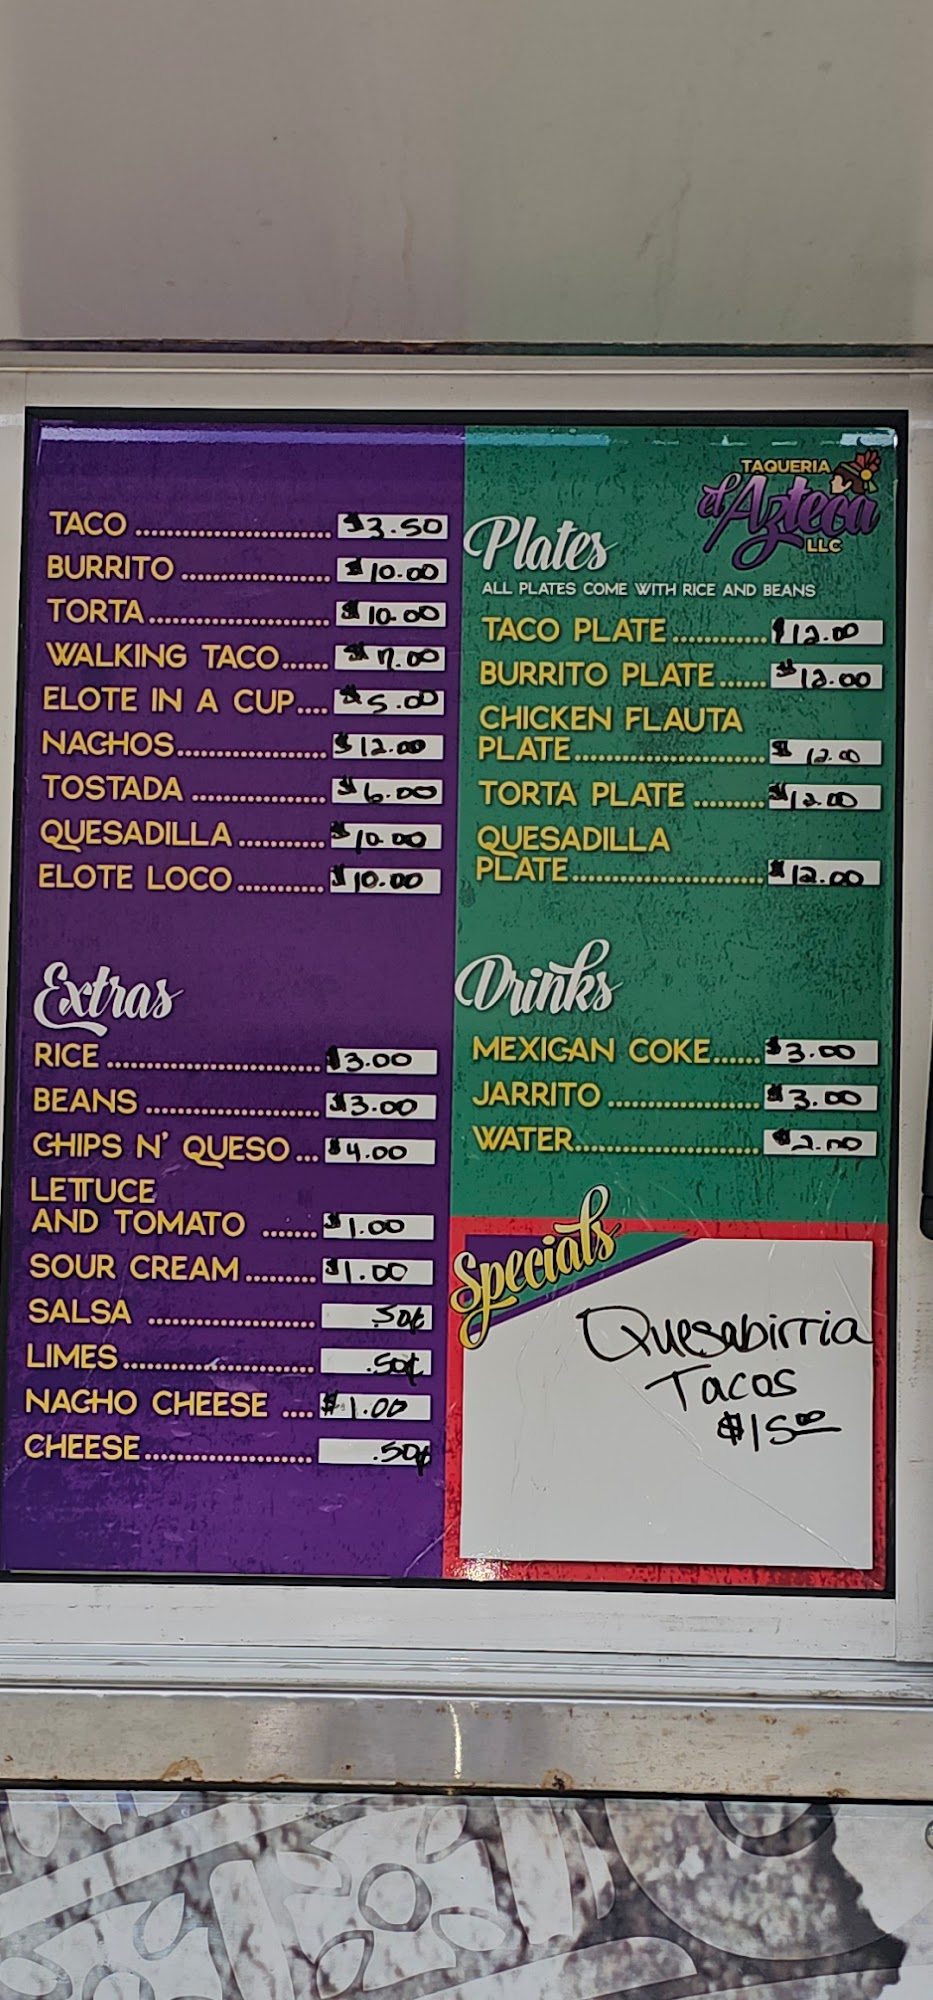 TACO .......... $3.50
BURRITO .......... $10.00
TORTA .......... $10.00
WALKING TACO...... $7.00
ELOTE IN A CUP.... $5.00
NACHOS .......... $12.00
TOSTADA .......... $6.00
QUESADILLA .......... $10.00
ELOTE LOCO .......... $10.00
Extras
RICE .......... $3.00
BEANS .......... $3.00
CHIPS N' QUESO ... $4.00
LETTUCE
AND TOMATO ....... $1.00
SOUR CREAM ......... $1.00
SALSA .......... .50¢
LIMES .......... .50¢
NACHO CHEESE .... $1.00
CHEESE .......... .50¢
TAQUERIA
el Azteca
LLC
Plates
ALL PLATES COME WITH RICE AND BEANS
TACO PLATE .......... $12.00
BURRITO PLATE ...... $12.00
CHICKEN FLAUTA
PLATE .......... $12.00
TORTA PLATE ......... $12.00
QUESADILLA
PLATE .......... $12.00
Drinks
MEXICAN COKE...... $3.00
JARRITO .......... $3.00
WATER .......... $2.00
Specials
Quesabirria
Tacos
$15.00